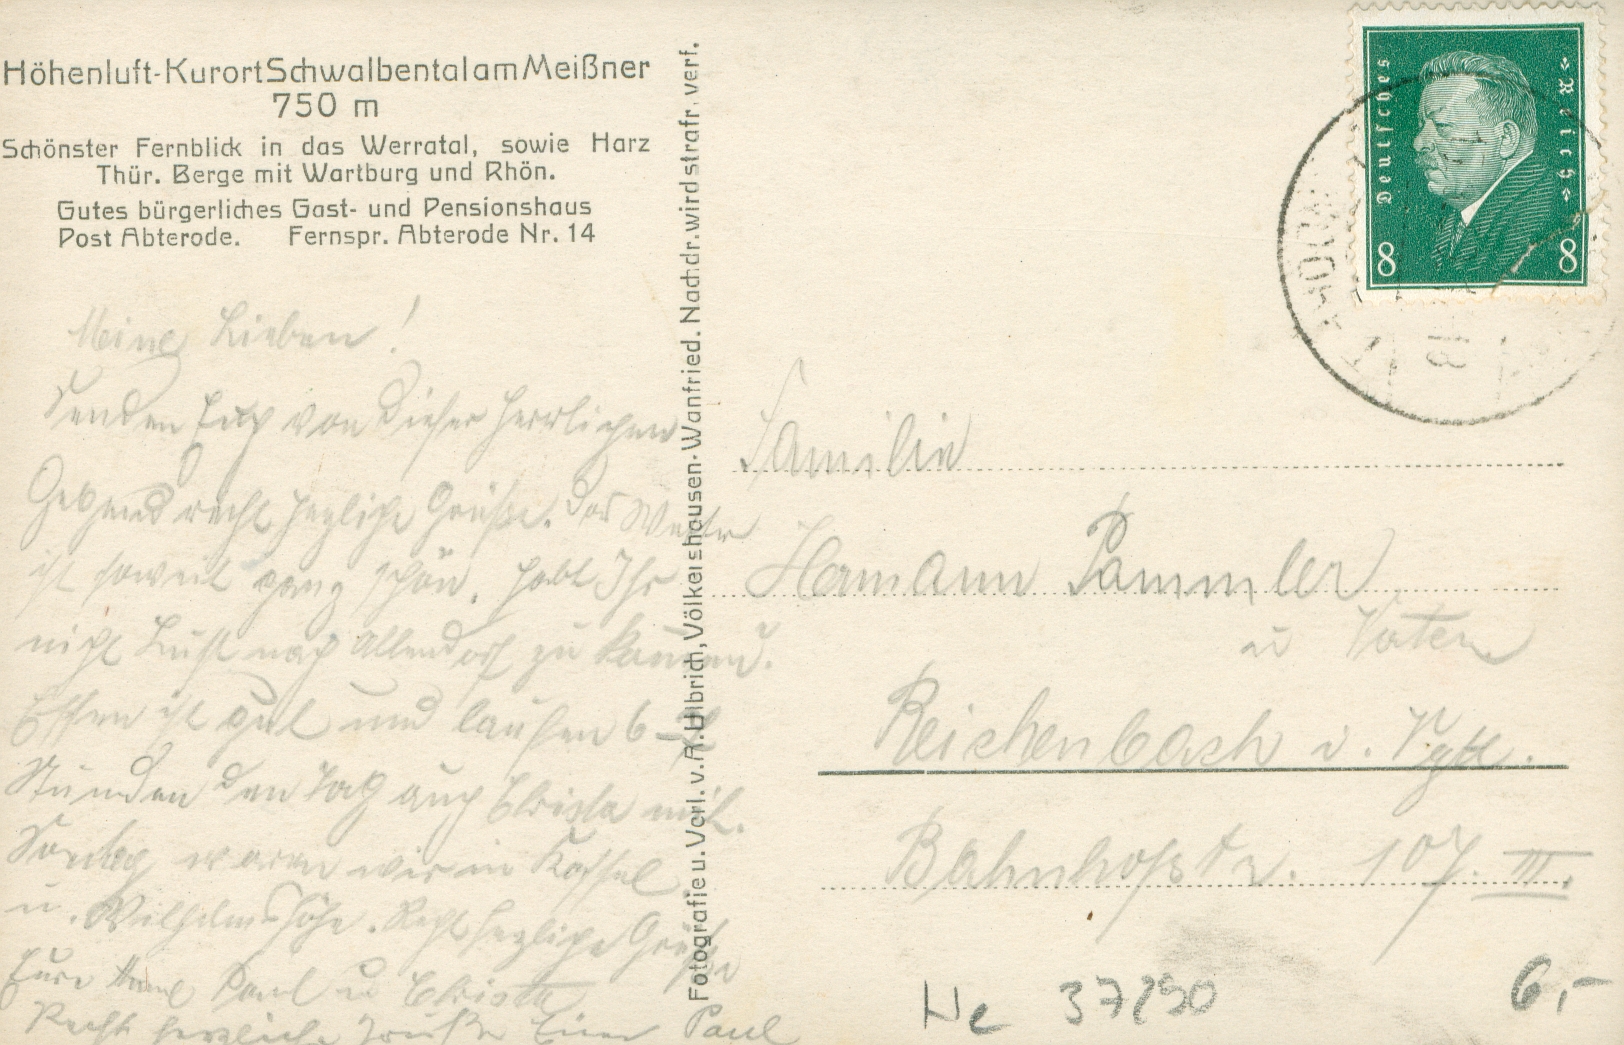 Höhenluft-Kurort Schwalbental am Meißner
750 m
Schönster Fernblick in das Werratal, sowie Harz
Thür. Berge mit Wartburg und Rhön.
Gutes bürgerliches Gast- und Pensionshaus
Post Abterode. Fernspr. Abterode Nr. 14
Meine Lieben!
Senden Euch von dieser herrlichen
Gegend recht herzliche Grüße. Das Wetter
ist soweit ganz schön. Habt Ihr
nicht Lust nach Allendorf zu kommen.
Essen ist gut und laufen 6-7
Stunden den Tag auch Christa mit.
Sonntag waren wir in Kassel
u. Wilhelmshöhe. Recht herzliche Grüße
Eure Paul u Christa
Recht herzliche Grüße Euer Paul
Fotografie u. Verl. v. A. Ulbrich, Völkershausen-Wanfried. Nachdr. wird strafr. verf.
Deutsches Reich
8 8
Familie
Hermann Pammler
u Vater
Reichenbach i. Vgtl.
Bahnhofstr. 107. III.
He 37290
6,-